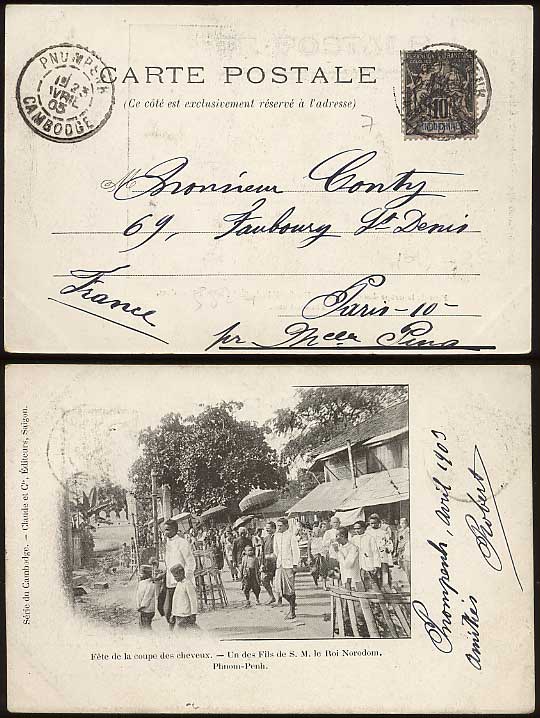 CARTE POSTALE
(Ce côté est exclusivement réservé à l'adresse)
PNUMPENH
23
AVRIL
03
CAMBODGE
10
INDO-CHINE
7
Monsieur Conty
69, Faubourg St Denis
Paris-10-
France
pr
Série du Cambodge. — Claude et Cie. Éditeurs, Saïgon.
Fête de la coupe des cheveux. — Un des Fils de S. M. le Roi Norodom.
Phnom-Penh.
Pnompenh, Avril 1903
amitiés
Robert